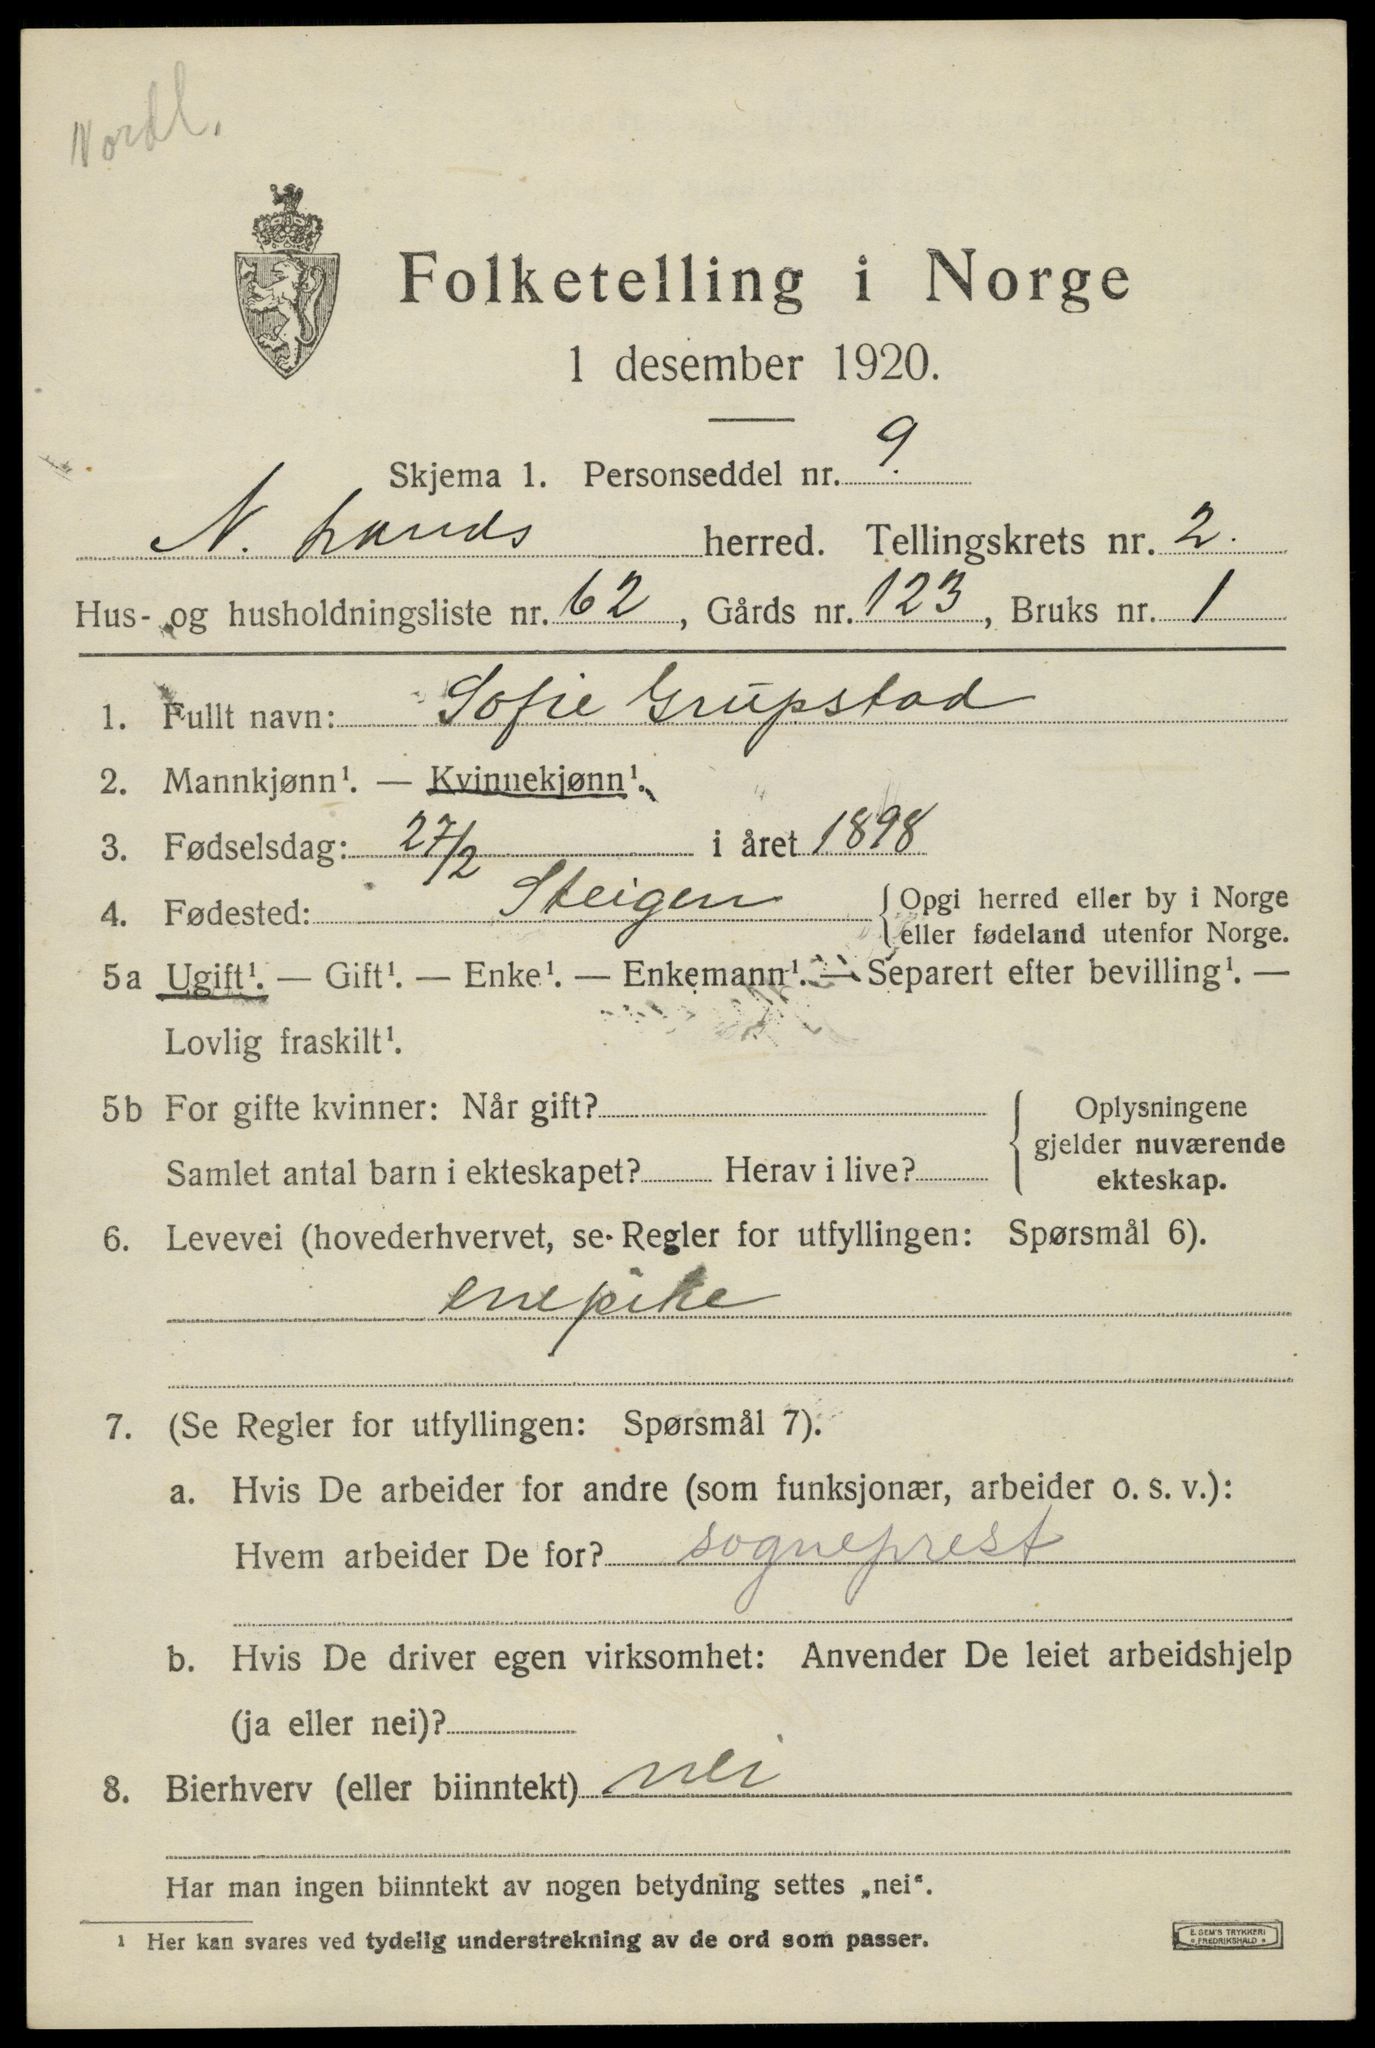 Nordl.
Folketelling i Norge
1 desember 1920.
Skjema 1. Personseddel nr. 9.
N. Lands herred. Tellingskrets nr. 2.
Hus- og husholdningsliste nr. 62, Gårds nr. 123, Bruks nr. 1
1. Fullt navn: Sofie Grupstad
2. Mannkjønn¹. — Kvinnekjønn¹.
3. Fødselsdag: 27/2 i året 1898
4. Fødested: Steigen {Opgi herred eller by i Norge
eller fødeland utenfor Norge.
5a Ugift¹. — Gift¹. — Enke¹. — Enkemann¹. — Separert efter bevilling¹. —
Lovlig fraskilt¹.
5b For gifte kvinner: Når gift? Oplysningene
gjelder nuværende
Samlet antal barn i ekteskapet? Herav i live? ekteskap.
6. Levevei (hovederhvervet, se Regler for utfyllingen: Spørsmål 6).
enepike
7. (Se Regler for utfyllingen: Spørsmål 7).
a. Hvis De arbeider for andre (som funksjonær, arbeider o. s. v.):
Hvem arbeider De for? sogneprest
b. Hvis De driver egen virksomhet: Anvender De leiet arbeidshjelp
(ja eller nei)?
8. Bierhverv (eller biinntekt) nei
Har man ingen biinntekt av nogen betydning settes „nei“.
¹ Her kan svares ved tydelig understrekning av de ord som passer.
E. SEM'S TRYKKERI
FREDRIKSHALD